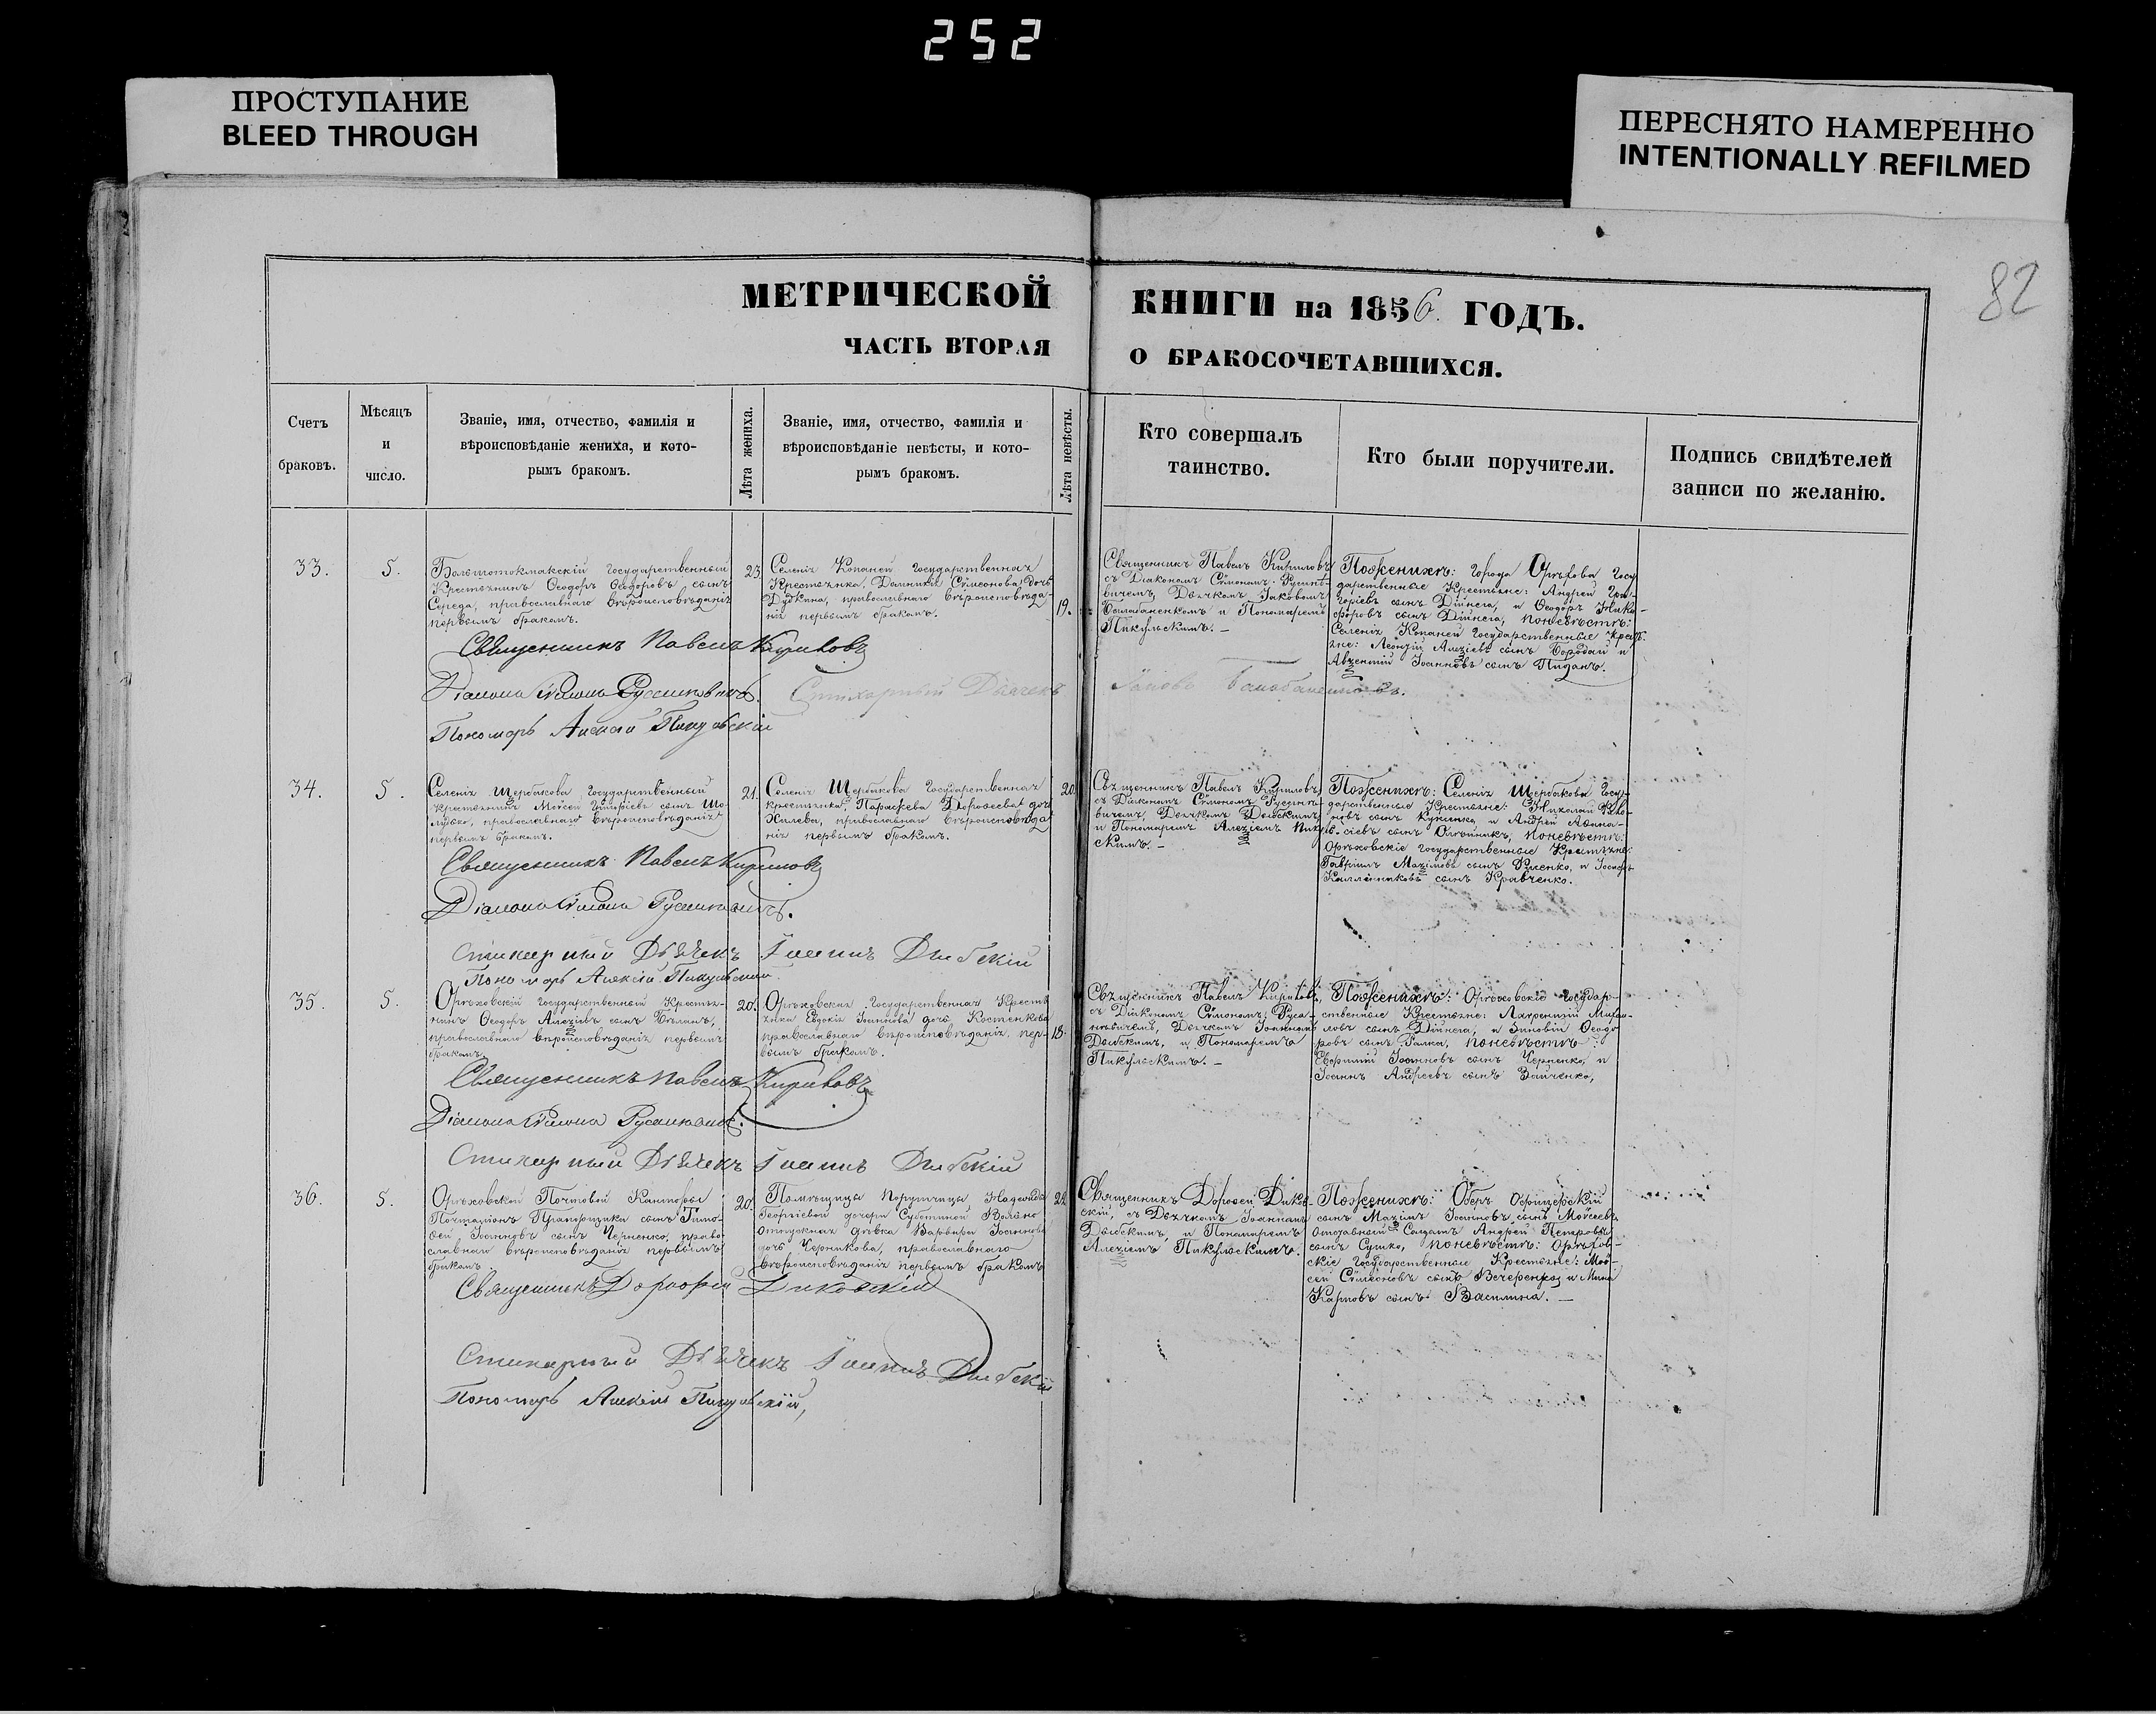 252
ПРОСТУПАНИЕ
BLEED THROUGH
ПЕРЕСНЯТО НАМЕРЕННО
INTENTIONALLY REFILMED
82
МЕТРИЧЕСКОЙ КНИГИ на 1856. ГОДЪ.
ЧАСТЬ ВТОРАЯ О БРАКОСОЧЕТАВШИХСЯ.
Счетъ
браковъ.
Мѣсяцъ
и
число.
Званіе, имя, отчество, фамилія и
вѣроисповѣданіе жениха, и кото-
рымъ бракомъ.
Лѣта жениха.
Званіе, имя, отчество, фамилія и
вѣроисповѣданіе невѣсты, и кото-
рымъ бракомъ.
Лѣта невѣсты.
Кто совершалъ
таинство.
Кто были поручители.
Подпись свидѣтелей
записи по желанію.
33.
5.
Большотокмакскій государственный
Крестьянинъ Ѳеодоръ Ѳеодоровъ сынъ
Середа, православнаго вѣроисповѣданія
первымъ бракомъ.
23.
Селенія Копаней государственная
Крестьянка, Домникія Сѵмеонова дочь
Дудкина, православнаго вѣроисповѣда-
нія первымъ бракомъ.
19.
Священникъ Павелъ Кириловъ
съ Діакономъ Сѵмономъ Русино-
вичемъ, Дьячкомъ Іаковомъ
Балабаненкомъ и Пономаремъ
Пикульскимъ. –
По женихѣ: города Орѣхова Госу-
дарственные Крестьяне: Андрей Гри-
горіевъ сынъ Дійнега, и Ѳеодоръ Ники-
форовъ сынъ Дійнега, по невѣстѣ:
Селенія Копаней государственные крестья-
не: Леонтій Алексіевъ сынъ Бородай и
Авксентій Іоанновъ сынъ Пиданъ.
Священникъ Павелъ Кириловъ
Стихарный Дьячекъ Іаковъ Балабаненковъ.
Пономарь Алексій Пикульскій
34.
5.
Селенія Щербакова государственный
крестьянинъ Мойсей Григоріевъ сынъ Шо-
православнаго вѣроисповѣданія
первымъ бракомъ.
21.
Селенія Щербакова государственная
крестьянка, Параскева Дороѳеева дочь
Хилева, православнаго вѣроисповѣда-
нія первымъ бракомъ.
20.
Священникъ Павелъ Кириловъ
съ Діакономъ Сѵмономъ Русино-
вичемъ, Дьячкомъ Дыбскимъ,
и Пономаремъ Алексіемъ Пикуль-
скимъ. –
По женихѣ: Селенія Щербакова Госу-
дарственные Крестьяне: Николай
сынъ и Андрей Аѳана-
сіевъ сынъ Олейникъ, по невѣстѣ:
Орѣховскіе государственные Крестьяне:
Гавріилъ Максимовъ сынъ и Іосифъ
сынъ Кравченко.
Священникъ Павелъ Кириловъ
Стихарный Дьячекъ Іоаннъ Дыбскій
Пономарь Алексій Пикульскій
35.
5.
Орѣховскій государственный Крестья-
нинъ Ѳеодоръ Алексіевъ сынъ Бѣланъ,
православнаго вѣроисповѣданія первымъ
бракомъ.
20.
Орѣховская государственная Кресть-
янка Евдокія Іоаннова дочь Костенкова
православнаго вѣроисповѣданія пер-
вымъ бракомъ.
18.
Священникъ Павелъ Кириловъ,
съ Діакономъ Сѵмономъ Руси-
новичемъ, Дьячкомъ Іоанномъ
Дыбскимъ, и Пономаремъ
Пикульскимъ. –
По женихѣ: Орѣховскіе государ-
ственные Крестьяне: Лаврентій Михаи-
ловъ сынъ Дійнега, и Зиновій Ѳеодо-
ровъ сынъ по невѣстѣ:
Іоанновъ сынъ Черненко, и
Іоаннъ Андреевъ сынъ Зайченко,
Священникъ Павелъ Кириловъ
Стихарный Дьячекъ Іоаннъ Дыбскій
36.
5.
Орѣховской Почтовой Канторы
Почталіонъ сынъ Тимо-
ѳей Іоанновъ сынъ Черненко, право-
славнаго вѣроисповѣданія первымъ
бракомъ.
20.
Помѣщицы Порутчицы Надежды
Георгіевой дочери Субботиной Вольно-
отпускная дѣвка Варвара Іоаннова
дочь Черникова, православнаго
вѣроисповѣданія первымъ бракомъ
22.
Священникъ Дороѳей Диков-
скій, съ Дьячкомъ Іоанномъ
Дыбскимъ, и Пономаремъ
Алексіемъ Пикульскимъ.
По женихѣ: Оберъ Офицерскій
сынъ Максимъ Іоанновъ сынъ Мойсеевъ
отставный Солдатъ Андрей Петровъ
сынъ Сушко, по невѣстѣ: Орѣхов-
скіе Государственные Крестьяне: Мой-
сей Сѵмеоновъ сынъ Вечеренко, и Мина
Карповъ сынъ Василина. –
Священникъ Дороѳей Диковскій
Стихарный Дьячекъ Іоаннъ Дыбскій
Пономарь Алексій Пикульскій,